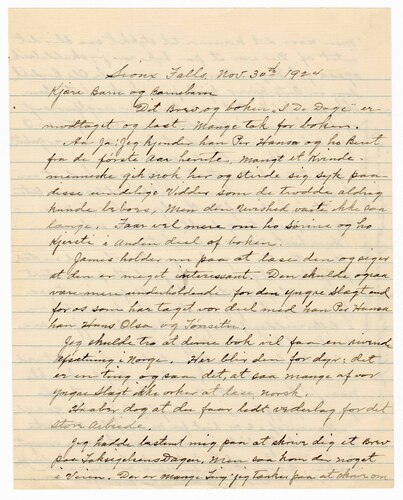 Sioux Falls, Nov. 30th 1924
Kjære Barn og Barnebarn
Det Brev og boken "I De Dage" er
modtaget og læst, Mange tak for boken.
Aa Ja! Jeg kjender han Per Hansa og ho Beret
fra de første Aar herute, mangt et Kvinde-
menneske gik nok her og stirde sig syk paa
disse uendelige Vidder som de trodde aldrig
kunde bebors, Men den Uvished varte ikke saa
lange. Faar vel mere om ho Sørine og ho
Kjersti i Anden deel af boken.
James holder nu paa at læse den og siger
at den er meget interessant. Den skulde ogsaa
være mere underholdende for den yngre Slægt end
for os som har taget vor deel med han Per Hansa
han Hans Olsa og Tønseten.
Jeg skulde tro at denne bok vil faa en
Afsætning i Norge. Her blir den for dyr; det
er en ting og saa det, at saa mange af vor
yngre Slægt ikke orker at læse norsk.
Haaber dog at du faar lidt vederlag for det
store Arbeide.
Jeg hadde bestemt mig paa at skrive dig et Brev
paa Taksigelsens Dagen, Men saa kom der noget
i Veien. Der er mange Ting jeg tænker paa at skrive om